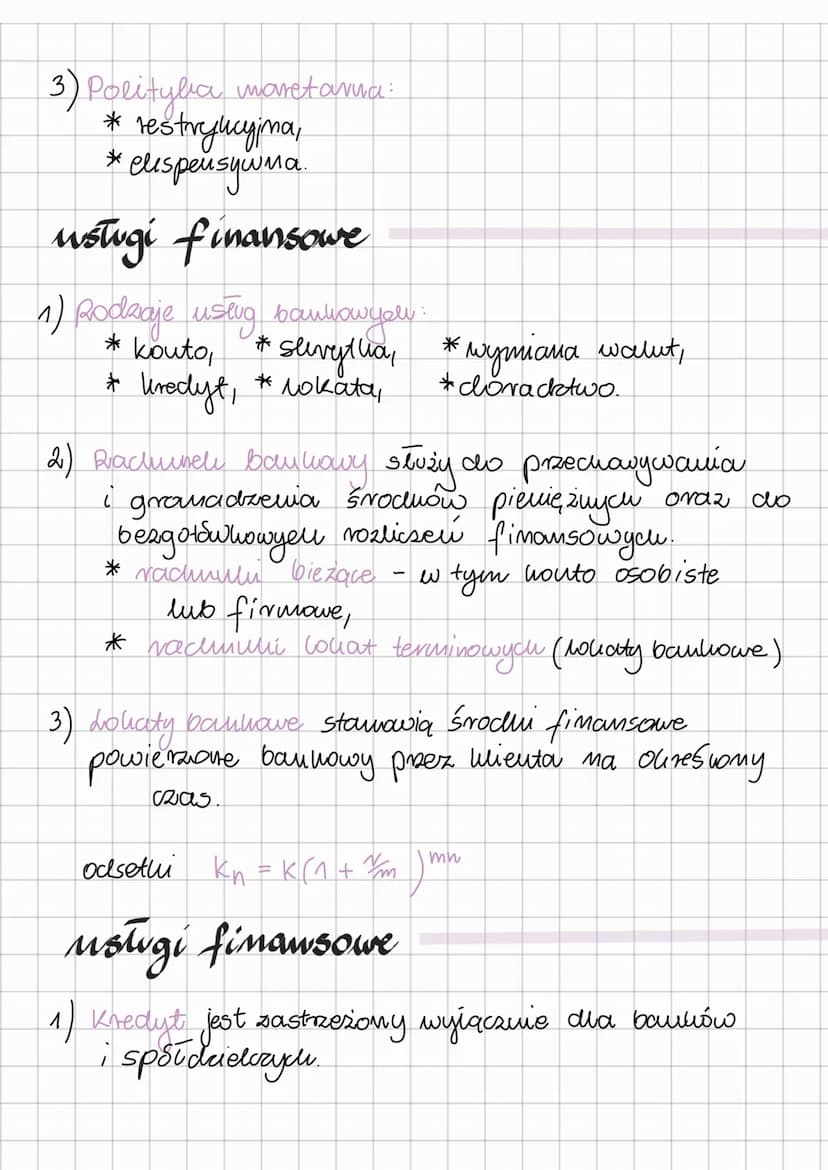 3) Polityka monetarna:
* restrykcyjna,
* ekspensywna.
usługi finansowe
1) Rodzaje usług bankowych:
* konto, * skrytka, * wymiana walut,
* kredyt, * lokata, * doradctwo.
2) Rachunek bankowy służy do przechowywania
i gromadzenia środków pieniężnych oraz do
bezgotówkowych rozliczeń finansowych.
* rachunki bieżące - w tym konto osobiste
lub firmowe,
* rachunki lokat terminowych (lokaty bankowe)
3) Lokaty bankowe stanowią środki finansowe
powierzone bankowy przez klienta na określony
czas.
odsetki Kn = K(1 + r/m)^mn
usługi finansowe
1) Kredyt jest zastrzeżony wyłącznie dla banków
i spółdzielczych.